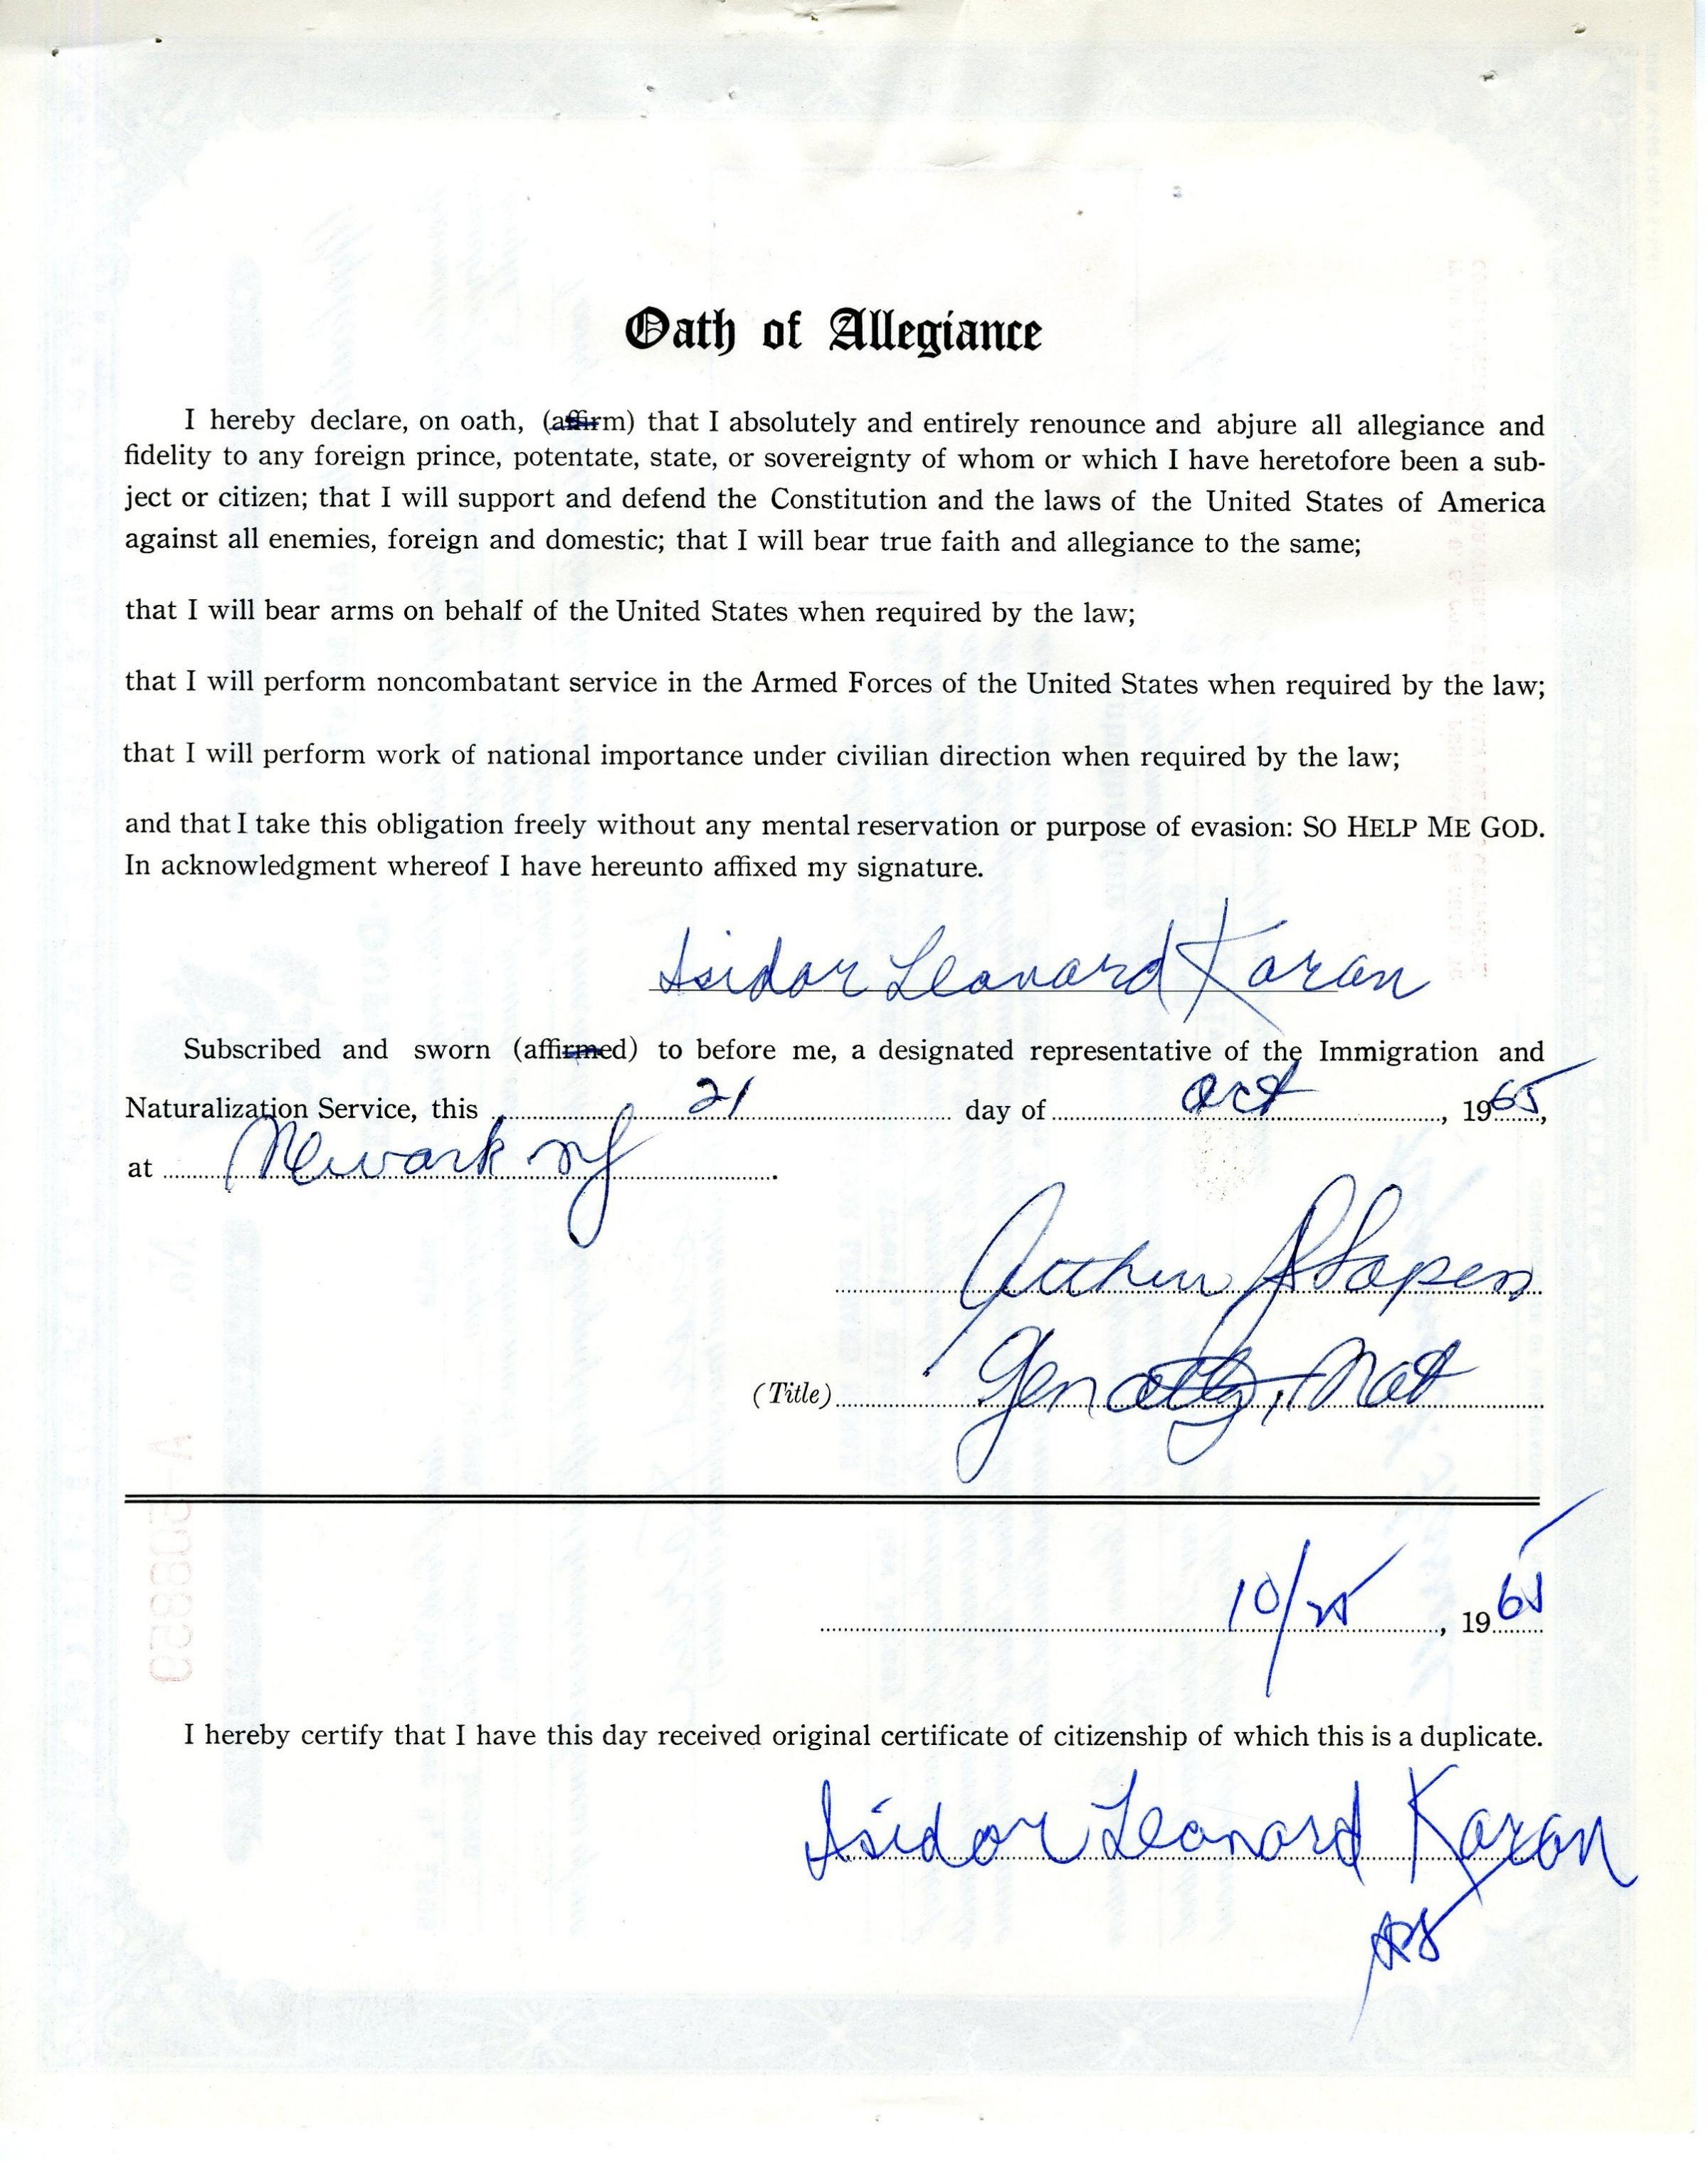 Oath of Allegiance
I hereby declare, on oath, (affirm) that I absolutely and entirely renounce and abjure all allegiance and
fidelity to any foreign prince, potentate, state, or sovereignty of whom or which I have heretofore been a sub-
ject or citizen; that I will support and defend the Constitution and the laws of the United States of America
against all enemies, foreign and domestic; that I will bear true faith and allegiance to the same;
that I will bear arms on behalf of the United States when required by the law;
that I will perform noncombatant service in the Armed Forces of the United States when required by the law;
that I will perform work of national importance under civilian direction when required by the law;
and that I take this obligation freely without any mental reservation or purpose of evasion: SO HELP ME GOD.
In acknowledgment whereof I have hereunto affixed my signature.
Isidor Leonard Karan
Subscribed and sworn (affirmed) to before me, a designated representative of the Immigration and
Naturalization Service, this 21 day of Oct, 1965,
at Newark NJ.
Arthur
(Title) Gen atty, Nat
10/25, 1965
I hereby certify that I have this day received original certificate of citizenship of which this is a duplicate.
Isidor Leonard Karan